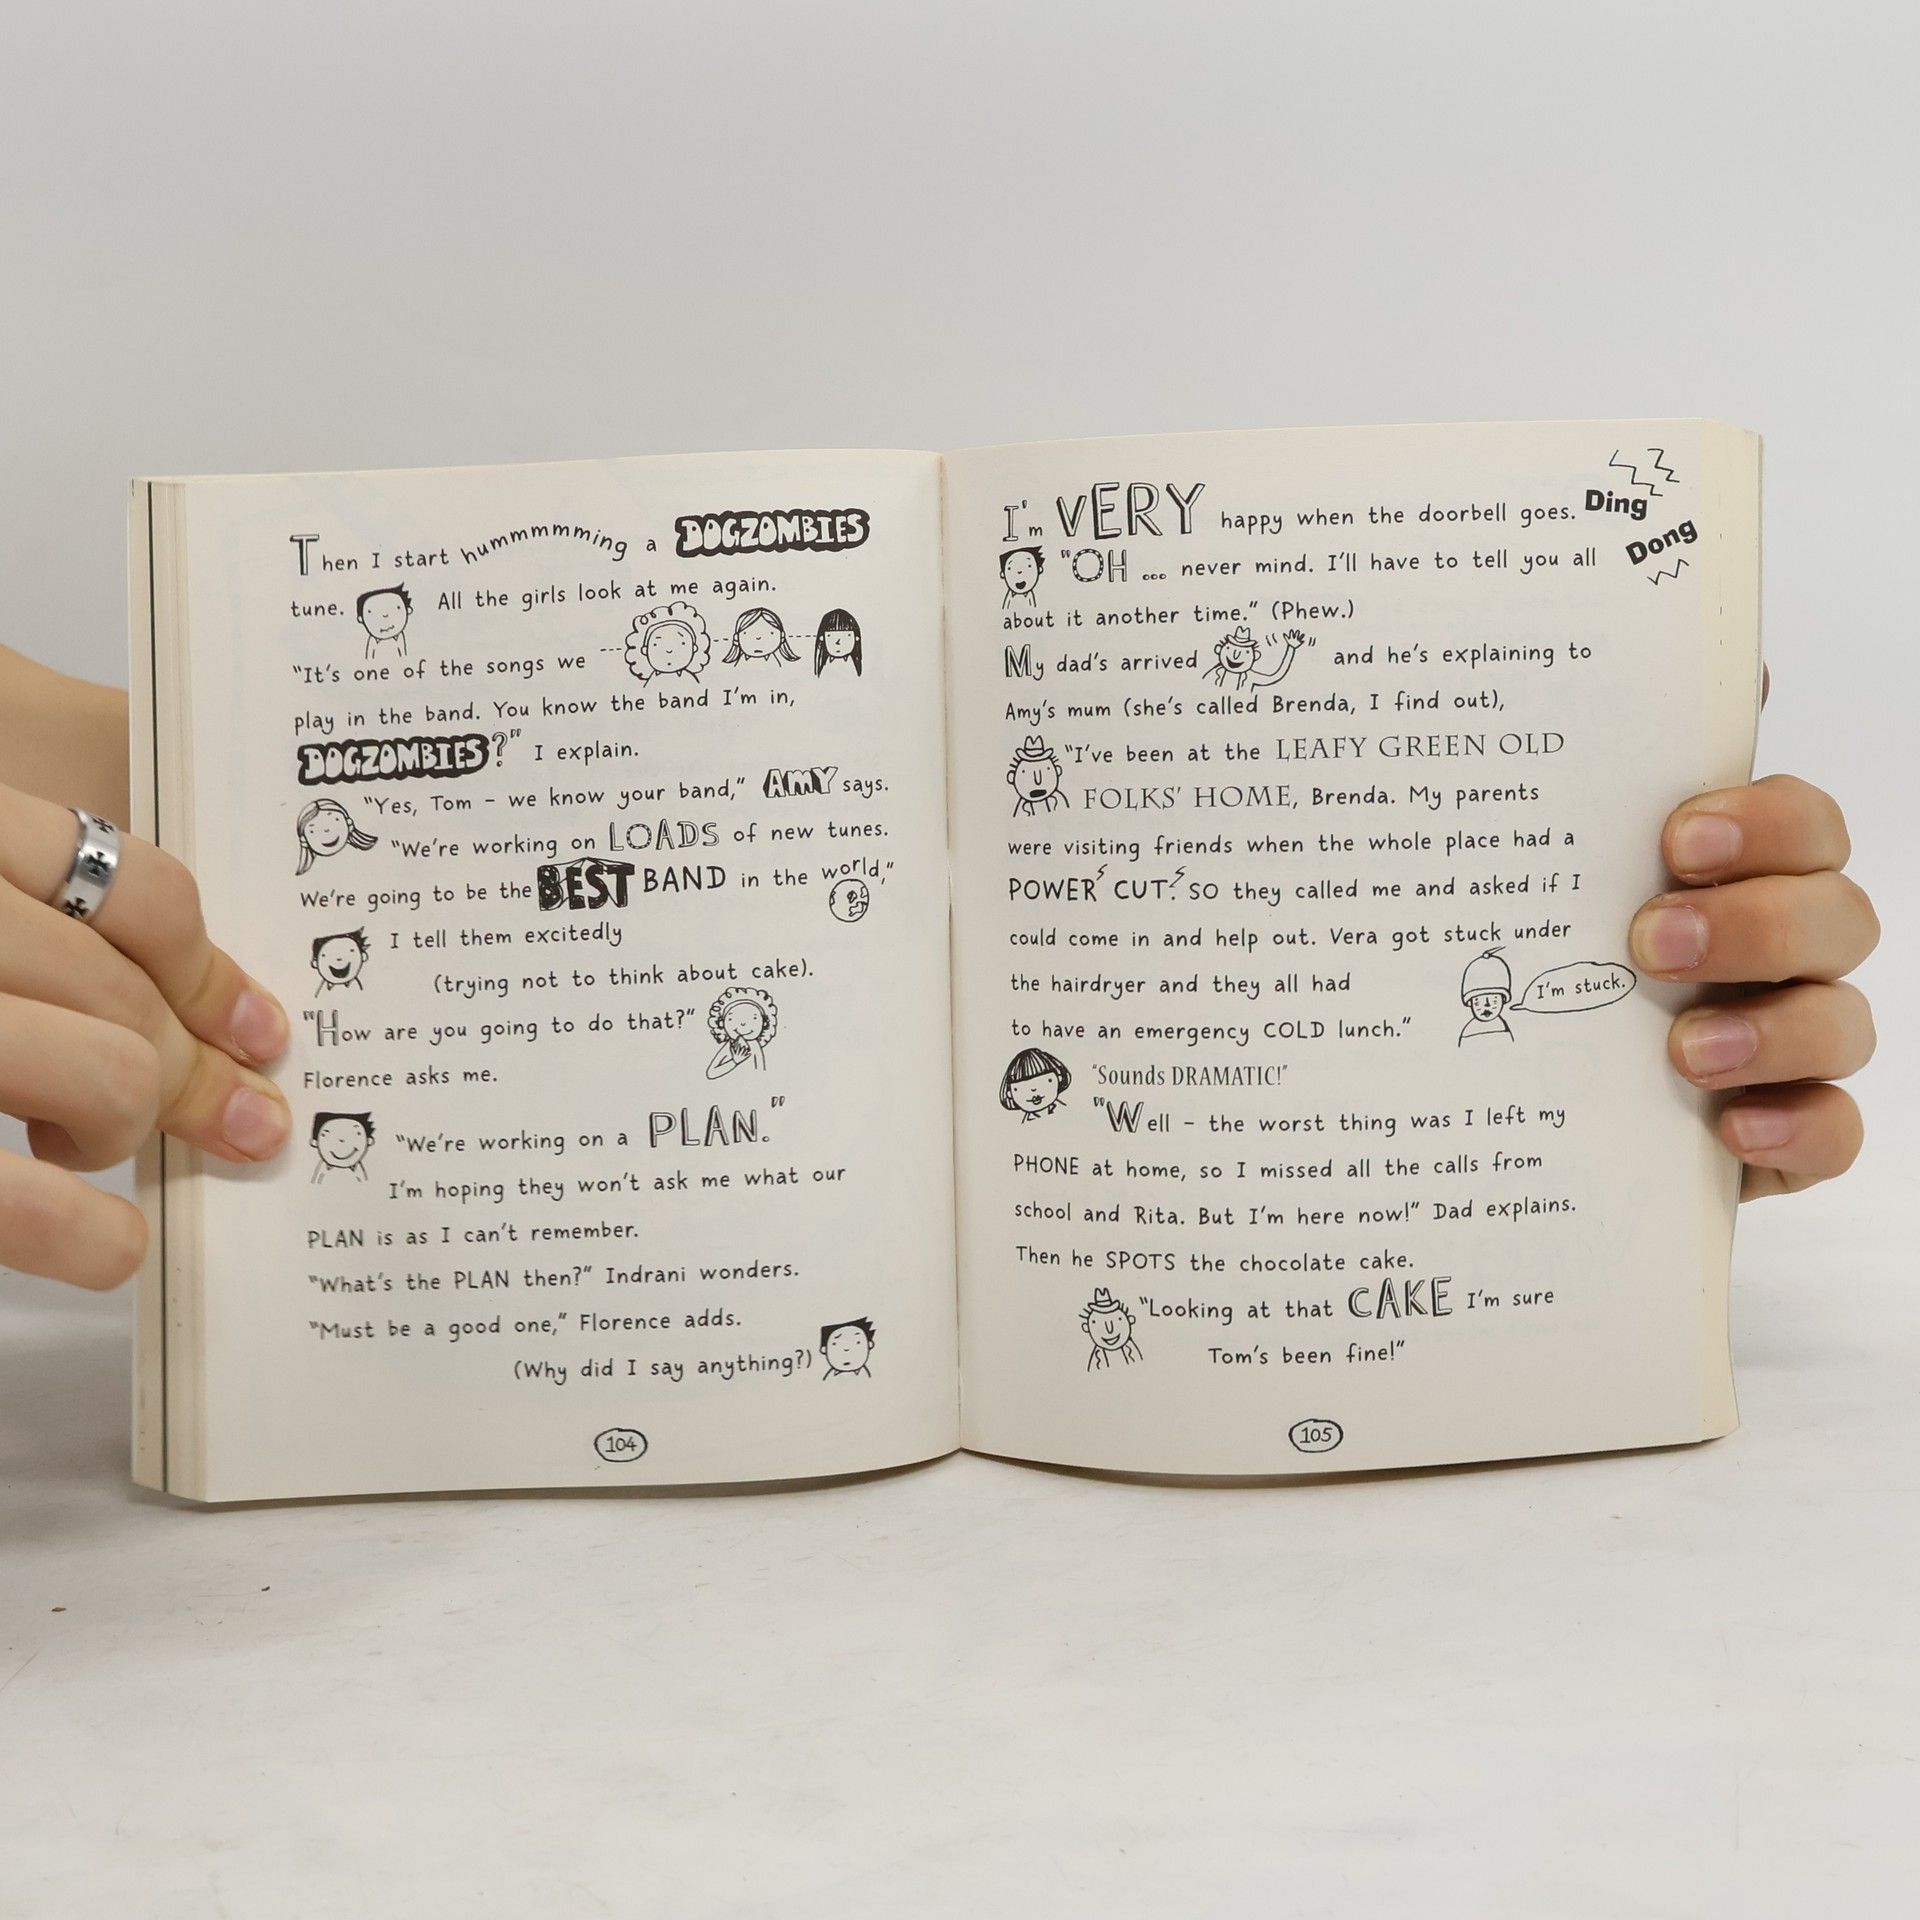 Then I start hummmmmming a DOGZOMBIES
tune. All the girls look at me again.
"It's one of the songs we
play in the band. You know the band I'm in,
DOGZOMBIES?" I explain.
"Yes, Tom – we know your band," AMY says.
"We're working on LOADS of new tunes.
We're going to be the BEST BAND in the world,"
I tell them excitedly
(trying not to think about cake).
"How are you going to do that?"
Florence asks me.
"We're working on a PLAN."
I'm hoping they won't ask me what our
PLAN is as I can't remember.
"What's the PLAN then?" Indrani wonders.
"Must be a good one," Florence adds.
(Why did I say anything?)
104
I'm VERY happy when the doorbell goes. Ding
Dong
"OH ... never mind. I'll have to tell you all
about it another time." (Phew.)
My dad's arrived and he's explaining to
Amy's mum (she's called Brenda, I find out),
"I've been at the LEAFY GREEN OLD
FOLKS' HOME, Brenda. My parents
were visiting friends when the whole place had a
POWER CUT. SO they called me and asked if I
could come in and help out. Vera got stuck under
the hairdryer and they all had
I'm stuck.
to have an emergency COLD lunch."
"Sounds DRAMATIC!"
"Well – the worst thing was I left my
PHONE at home, so I missed all the calls from
school and Rita. But I'm here now!" Dad explains.
Then he SPOTS the chocolate cake.
"Looking at that CAKE I'm sure
Tom's been fine!"
105